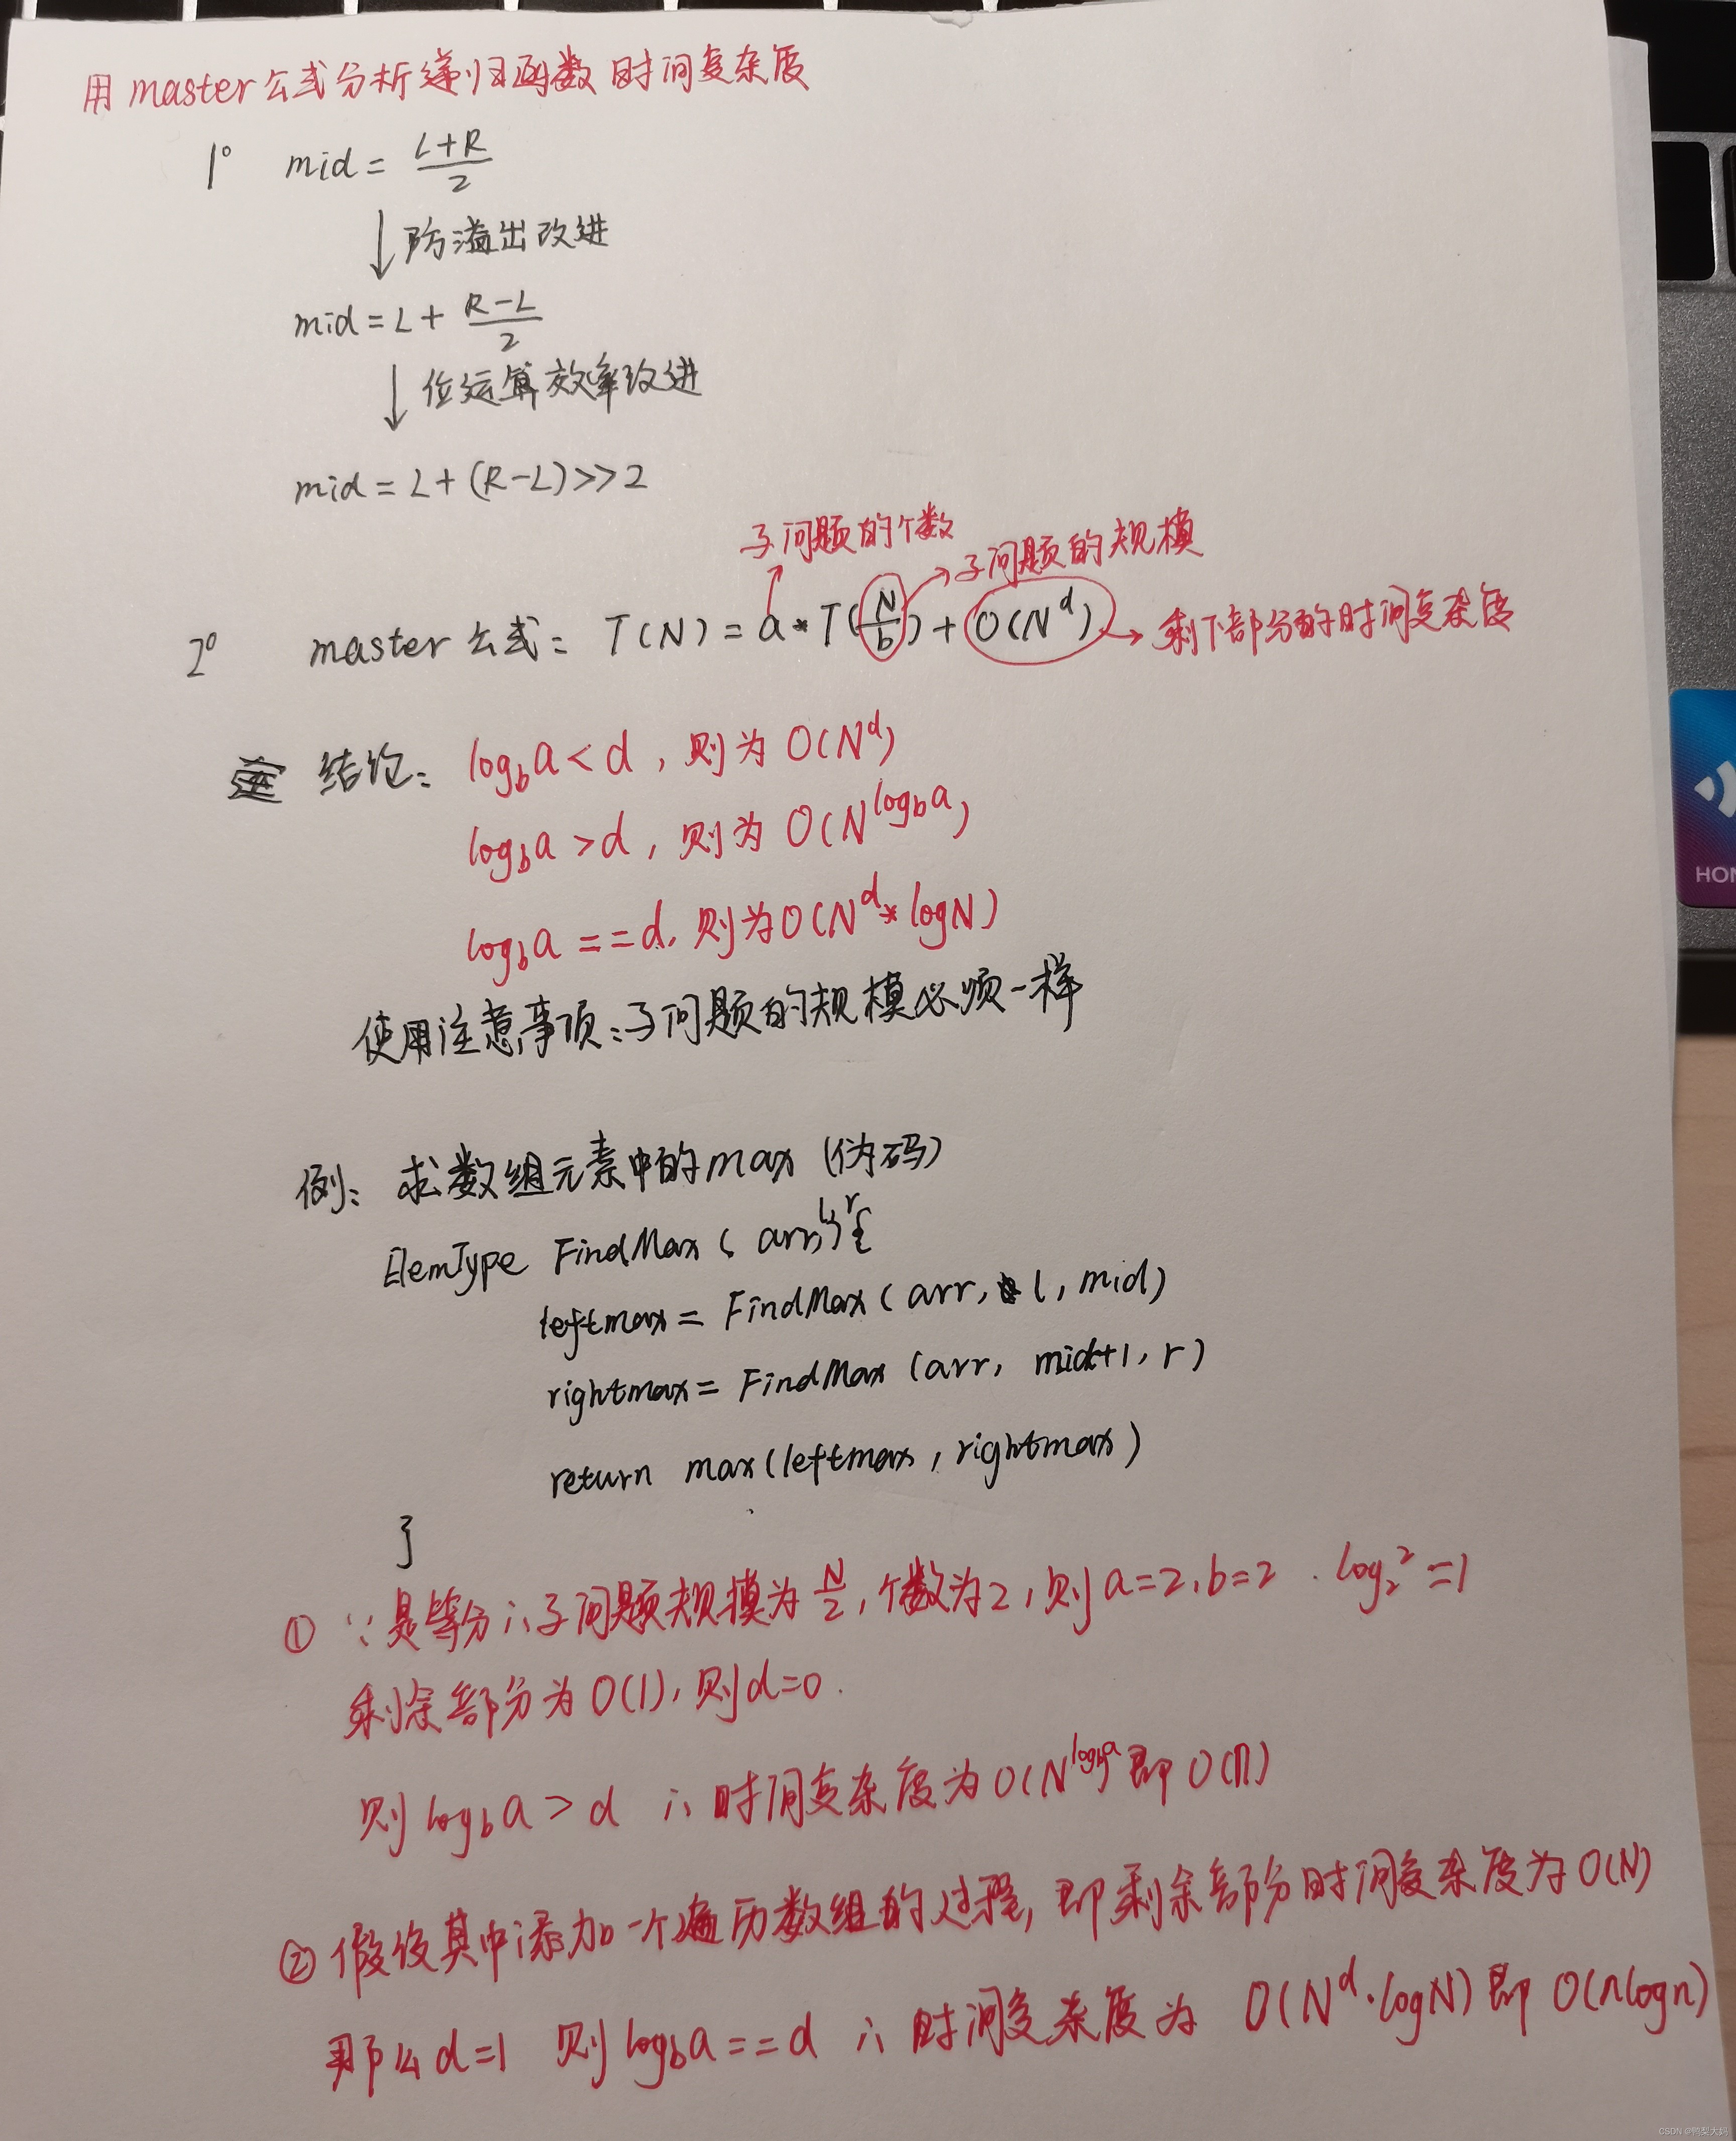 用master公式分析递归函数时间复杂度
1° mid = (L+R)/2
↓防溢出改进
mid = L + (R-L)/2
↓位运算效率改进
mid = L+(R-L)>>2
子问题的个数
子问题的规模
2° master公式: T(N) = a * T(N/b) + O(N^d) → 剩下部分的时间复杂度
结论: log_b a < d, 则为 O(N^d)
log_b a > d, 则为 O(N^(log_b a))
log_b a == d, 则为 O(N^d * logN)
使用注意事项:子问题的规模必须一样
例: 求数组元素中的max (伪码)
ElemType FindMax ( arr, l, r){
leftmax = FindMax ( arr, l, mid)
rightmax = FindMax (arr, mid+1, r)
return max(leftmax, rightmax)
}
① ∵是等分∴子问题规模为 N/2, 个数为2, 则 a=2, b=2. log₂² = 1
剩余部分为O(1), 则d=0.
则 log_b a > d ∴ 时间复杂度为O(N^(log_b a) 即 O(n)
② 假设其中添加一个遍历数组的过程, 即剩余部分时间复杂度为O(N)
那么d=1 则log_b a == d ∴ 时间复杂度为 O(N^d·logN) 即 O(nlogn)
HON
CSDN @鸭梨大蚂